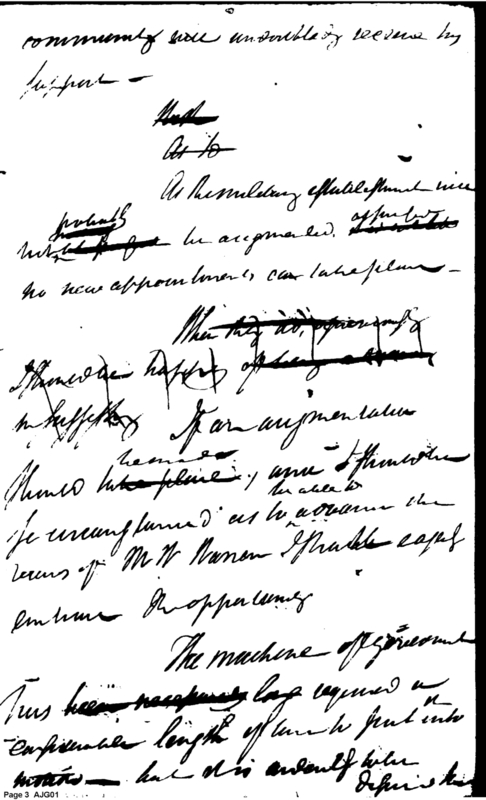 community will undoubtedly receive my
support —
As to
As the military establishment will
probably
not be augmented,
no new appointments can take place —
When they do,
I should be happy
If an augmentation
should take place, and I should be
be able to
so circumstanced as to advance the
views of Mr W Warren I shall eagerly
embrace the opportunity
The machine of Government
has been necessarily long required a
considerable length of time to put into
motion — but it is ardently to be
desired
Page 3 AJG01